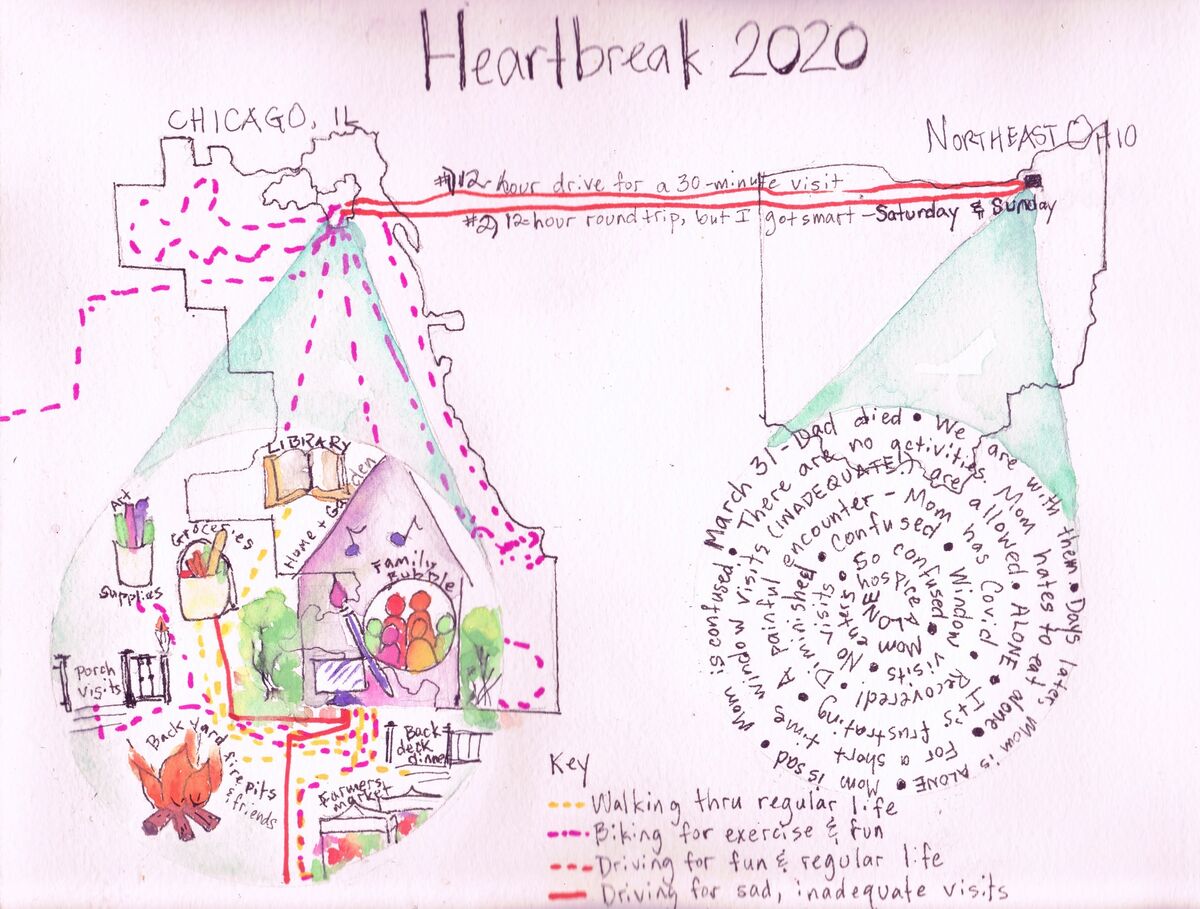 Heartbreak 2020
CHICAGO, IL
NORTHEAST OHIO
#1) 12-hour drive for a 30-minute visit
#2) 12-hour round trip, but I got smart - Saturday & Sunday
LIBRARY
Art
Supplies
Groceries
Home + Garden
Family
Bubble
Porch
Visits
Back yard
fire pits
& friends
Back
deck
dinner
Farmers
market
March 31 - Dad died • We are with them • Days later, Mom is ALONE • Mom is sad • Mom is confused • There are no activities. Mom hates to eat alone • For a short time, window visits (INADEQUATE) are allowed • ALONE • It's frustrating • A painful encounter - Mom has Covid • Recovered! • Diminished • Confused • Window visits • No visits • So confused • Mom enters hospice ALONE
Key
Walking thru regular life
Biking for exercise & fun
Driving for fun & regular life
Driving for sad, inadequate visits